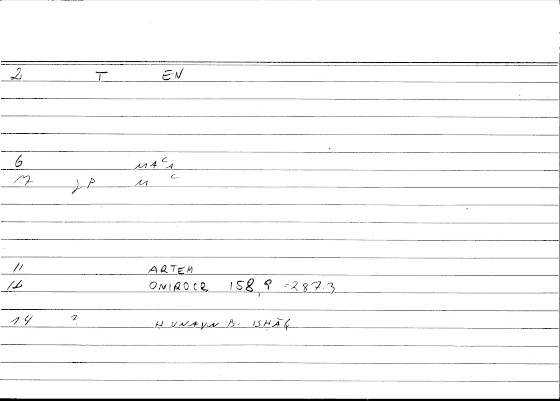 2 T EN
6
P
11 ARTEM
ONIROCR 158,9 =287.3
14 ? HUNAYN B. ISHĀQ